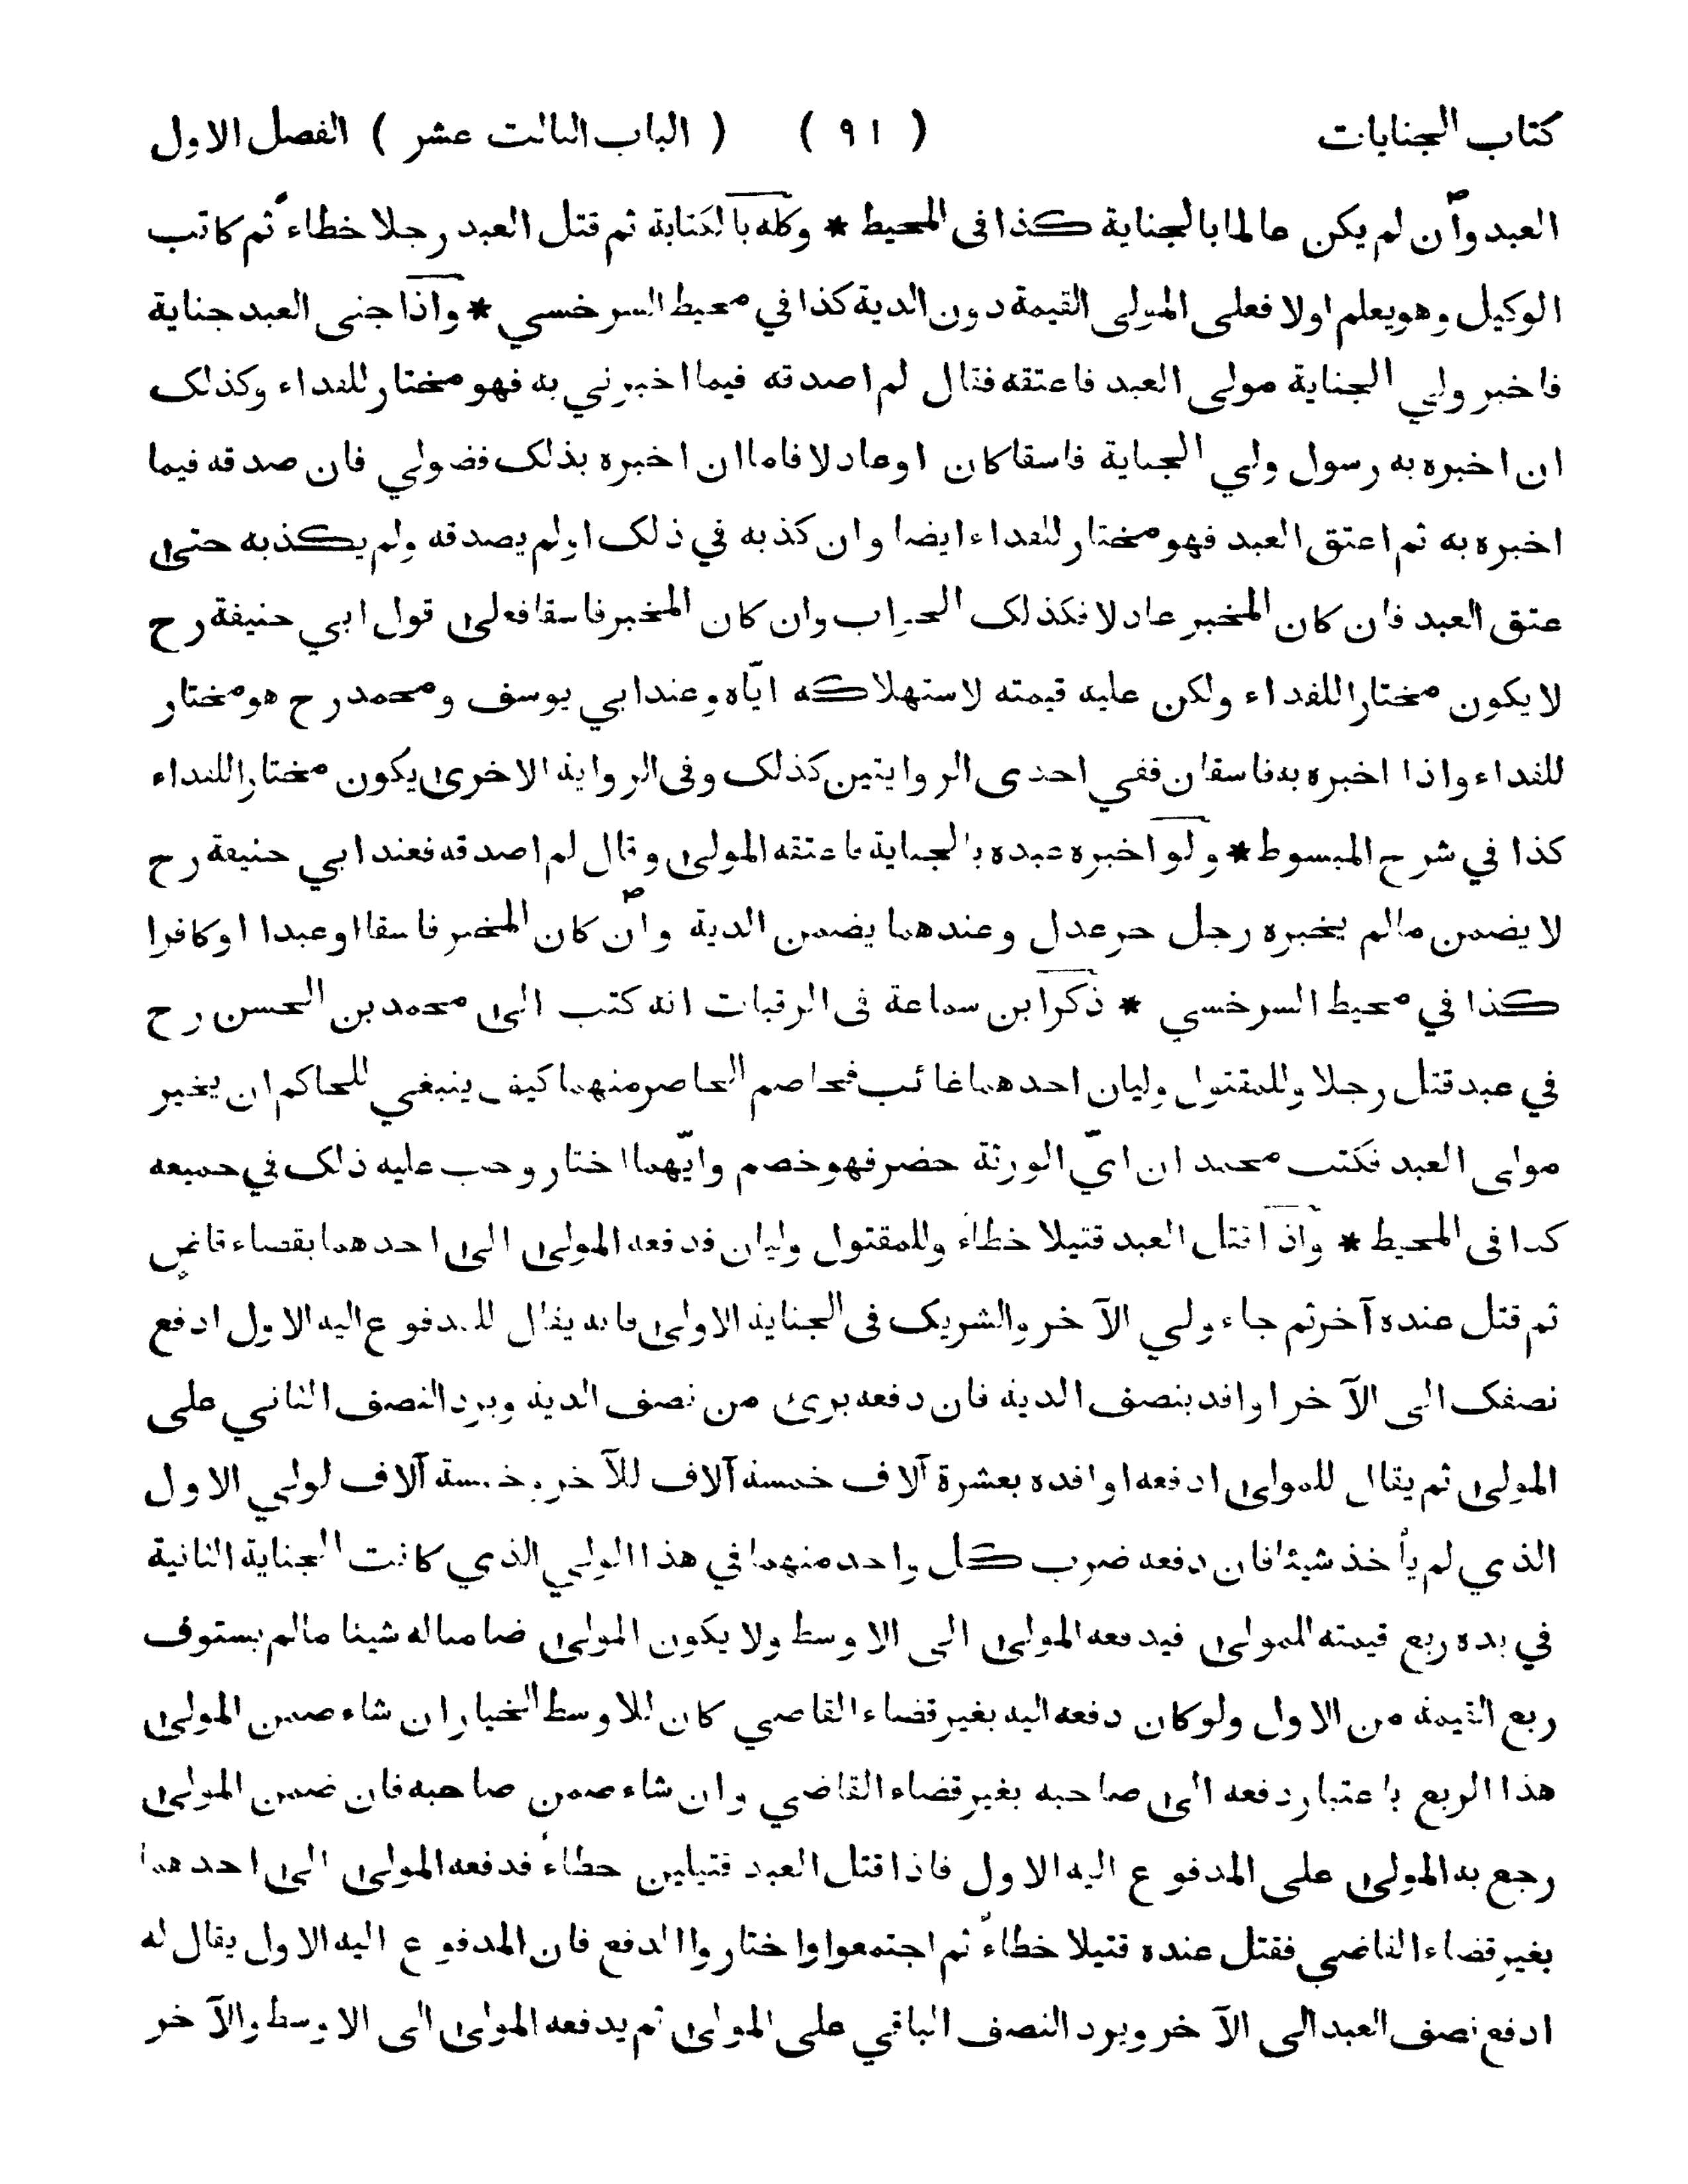 كتاب الجنايات ( ٩١ ) ( الباب الثالث عشر ) الفصل الاول
العبد وان لم يكن عالما بالجناية كذا فى المحيط * وكله بالكتابة ثم قتل العبد رجلا خطاء ثم كاتب
الوكيل وهو يعلم اولا فعلى المولى القيمة دون الدية كذا في محيط السرخسي * واذا جنى العبد جناية
فاخبر ولي الجناية مولى العبد فاعتقه فقال لم اصدقه فيما اخبرني به فهو مختار للفداء وكذلك
ان اخبره به رسول ولي الجناية فاسقا كان اوعادلا فاما ان اخبره بذلك فضولي فان صدقه فيما
اخبره به ثم اعتق العبد فهو مختار للفداء ايضا وان كذبه في ذلك اولم يصدقه ولم يكذبه حتى
عتق العبد فان كان المخبر عادلا فكذلك الجواب وان كان المخبر فاسقا فعلى قول ابي حنيفة رح
لا يكون مختارا للفداء ولكن عليه قيمته لاستهلاكه ايّاه وعند ابي يوسف ومحمد رح هو مختار
للفداء واذا اخبره به فاسقان ففي احدى الروايتين كذلك وفى الرواية الاخرى يكون مختارا للفداء
كذا في شرح المبسوط * ولو اخبره عبده بالجناية فاعتقه المولى وقال لم اصدقه فعند ابي حنيفة رح
لا يضمن مالم يخبره رجل حر عدل وعندهما يضمن الدية وان كان المخبر فاسقا اوعبدا اوكافرا
كذا في محيط السرخسي * ذكر ابن سماعة فى الرقيات انه كتب الى محمد بن الحسن رح
في عبد قتل رجلا وللمقتول وليان احدهما غائب فخاصم الحاضر منهما كيف ينبغي للحاكم ان يخير
مولى العبد فكتب محمد ان ايّ الورثة حضر فهو خصم وايّهما اختار وجب عليه ذلك في جميعه
كذا فى المحيط * واذا قتل العبد قتيلا خطاء وللمقتول وليان فدفعه المولى الى احدهما بقضاء قاض
ثم قتل عنده آخر ثم جاء ولي الآخر والشريك فى الجناية الاولى فانه يقال للمدفوع اليه الاول ادفع
نصفك الى الآخر اوافد بنصف الدية فان دفعه برئ من نصف الدية ويرد النصف الثاني على
المولى ثم يقال للمولى ادفعه اوافده بعشرة آلاف خمسة آلاف للآخر وخمسة آلاف لولي الاول
الذي لم يأخذ شيئا فان دفعه ضرب كل واحد منهما في هذا الولي الذي كانت الجناية الثانية
في يده ربع قيمته للمولى فيدفعه المولى الى الاوسط ولا يكون المولى ضامنا له شيئا مالم يستوف
ربع القيمة من الاول ولوكان دفعه اليه بغير قضاء القاضي كان للاوسط الخيار ان شاء ضمن المولى
هذا الربع باعتبار دفعه الى صاحبه بغير قضاء القاضي وان شاء ضمن صاحبه فان ضمن المولى
رجع به المولى على المدفوع اليه الاول فاذا قتل العبد قتيلين خطاء فدفعه المولى الى احدهما
بغير قضاء القاضي فقتل عنده قتيلا خطاء ثم اجتمعوا واختاروا الدفع فان المدفوع اليه الاول يقال له
ادفع نصف العبد الى الآخر ويرد النصف الباقي على المولى ثم يدفعه المولى الى الاوسط والآخر